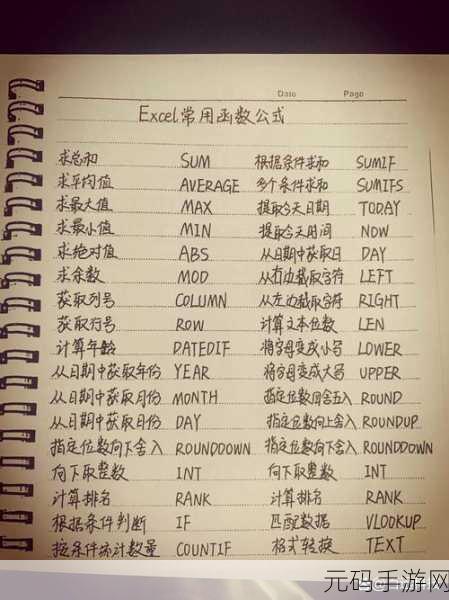 Date Page
Excel常用函数公式
求总和 SUM 根据条件求和 SUMIF
求平均值 AVERAGE 多个条件求和 SUMIFS
求最大值 MAX 提取今天日期 TODAY
求最小值 MIN 提取今天时间 NOW
求绝对值 ABS 从日期中获取日 DAY
求余数 MOD 从右边截取字符 LEFT
获取列号 COLUMN 从左边截取字符 RIGHT
获取行号 ROW 计算文本位数 LEN
计算年龄 DATEDIF 将字母变成小号 LOWER
从日期中获取年份 YEAR 将字母变成大号 UPPER
从日期中获取月份 MONTH 指定位数四舍五入 ROUND
从日期中获取日份 DAY 指定位数向上舍入 ROUNDUP
指定位数向下舍入 ROUNDDOWN 指定位数向下舍入 ROUNDDOWN
向下取整数 INT 向下取整数 INT
计算排名 RANK 计算排名 RANK
根据条件判断 IF 匹配数据 VLOOKUP
按条件统计数量 COUNTIF 格式转换 TEXT
元码手游网